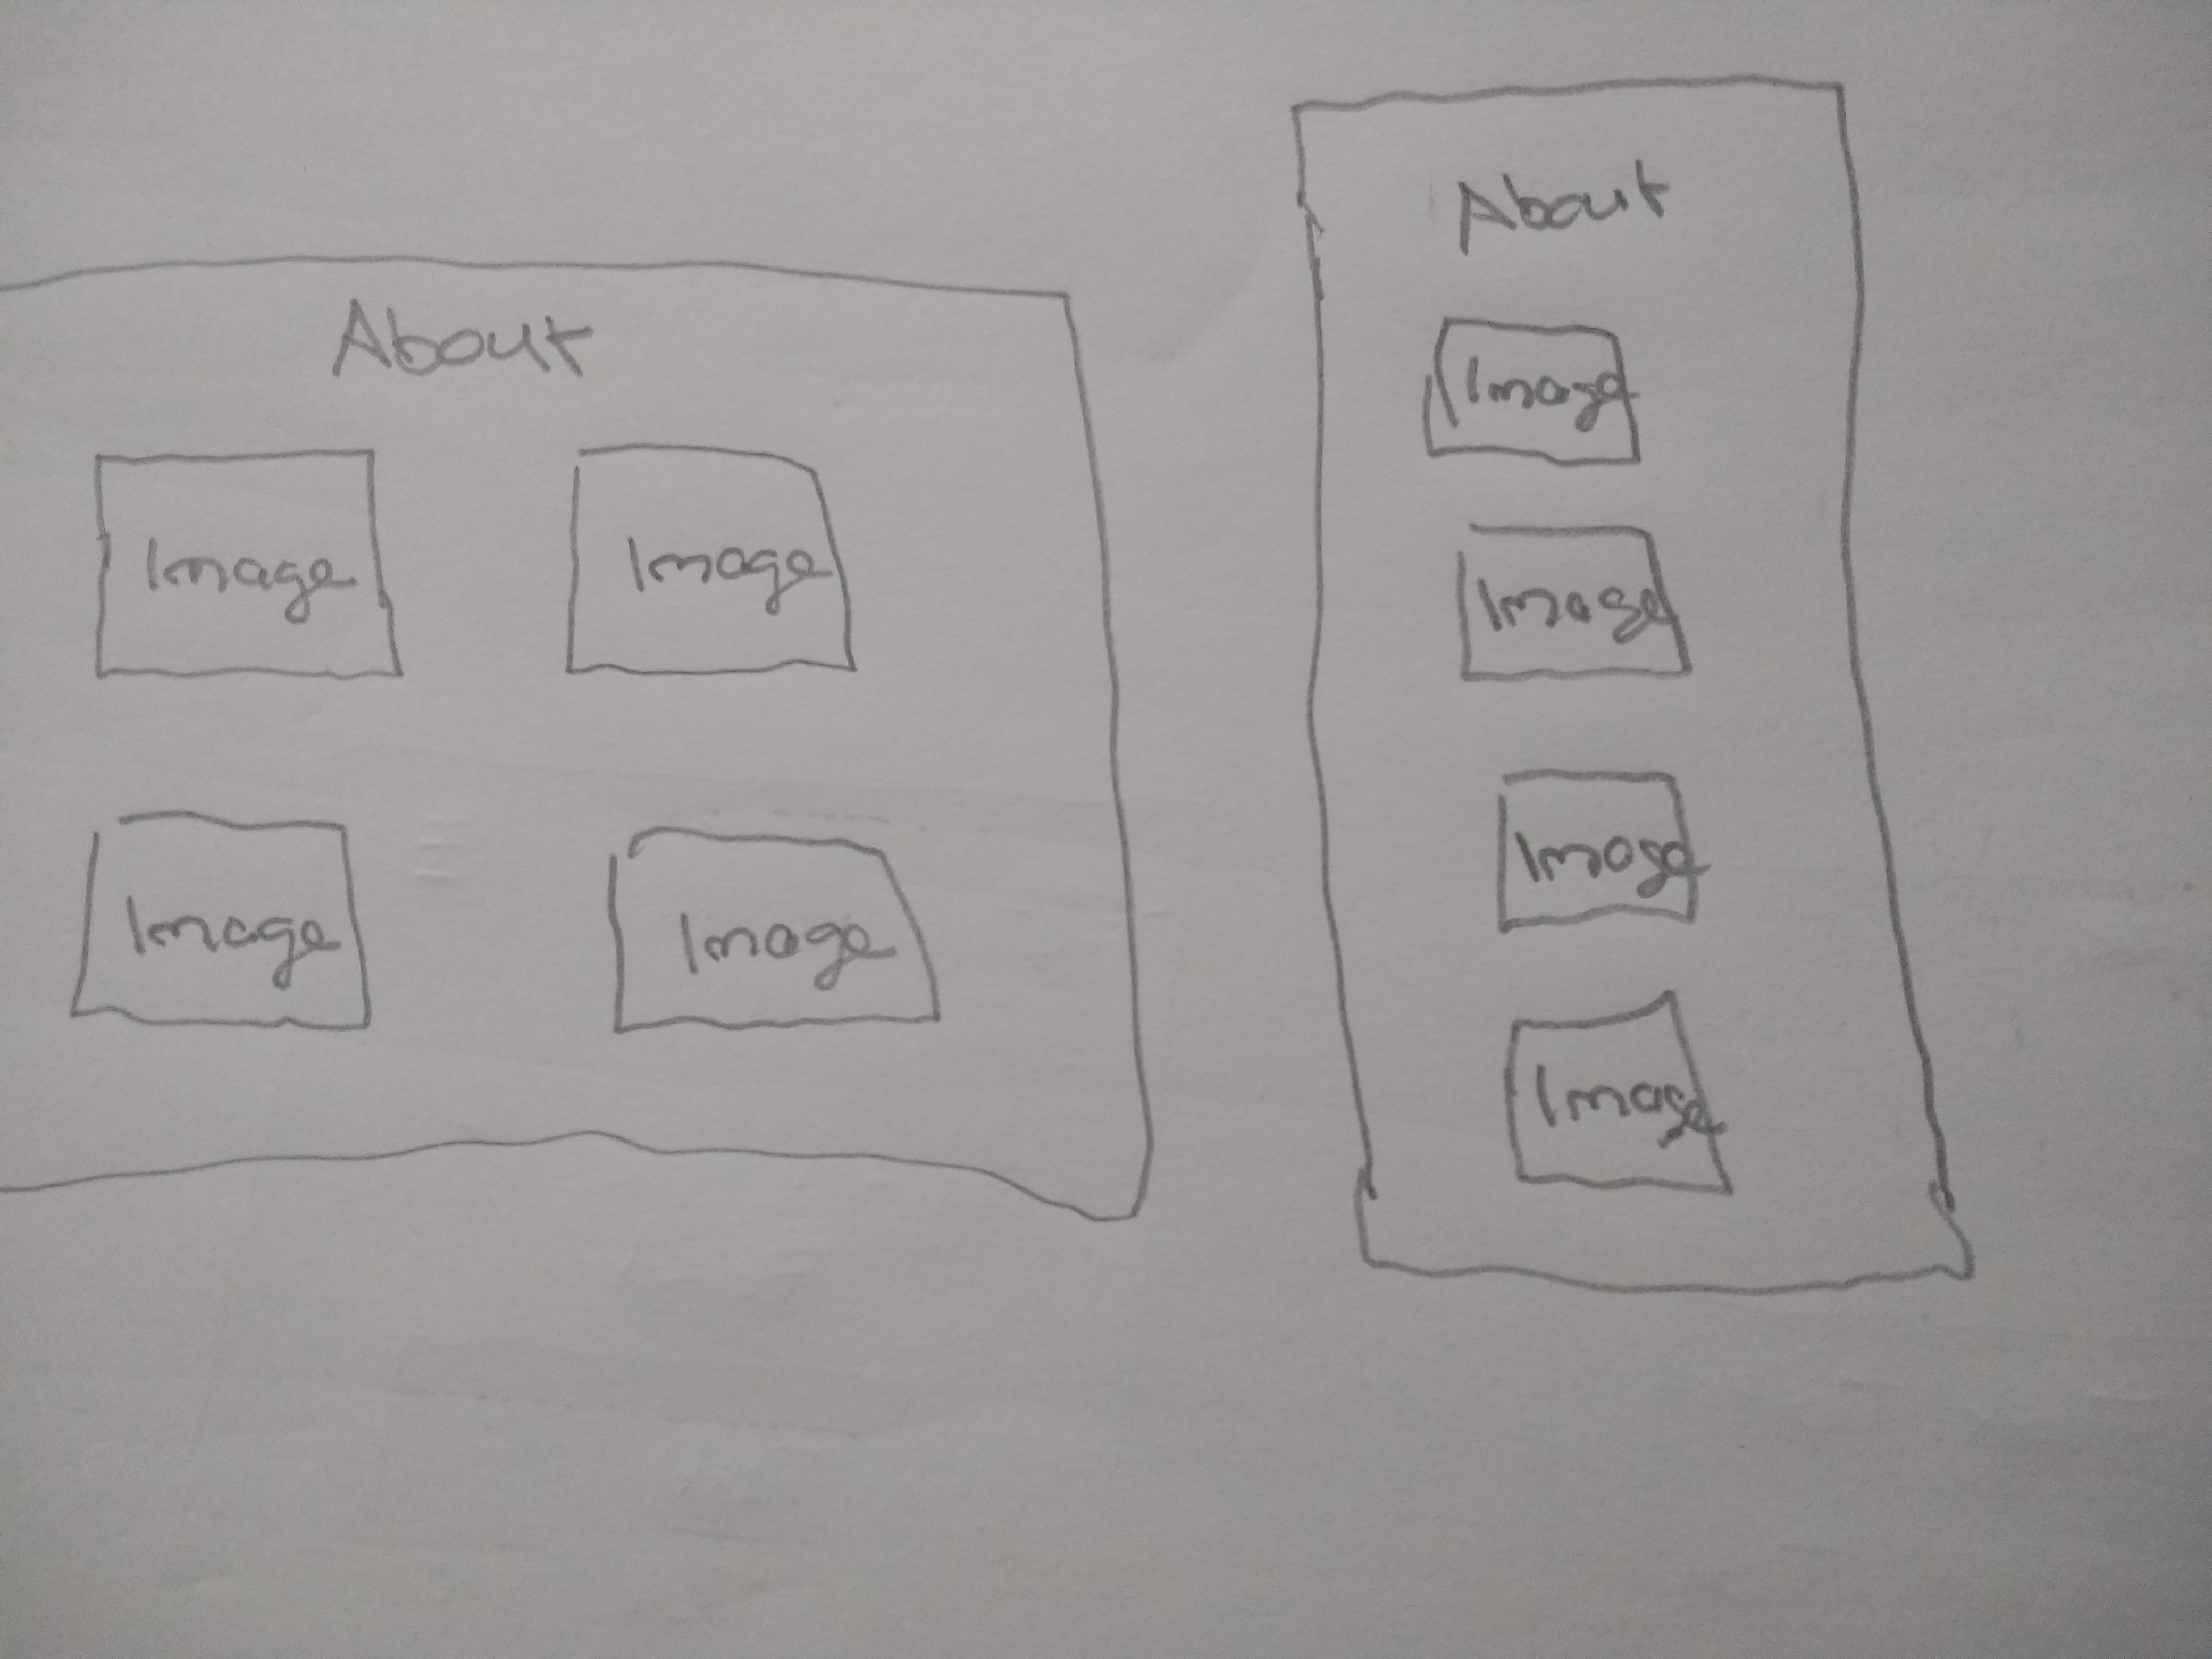 About
Image Image
Image Image
About
Image
Image
Image
Image